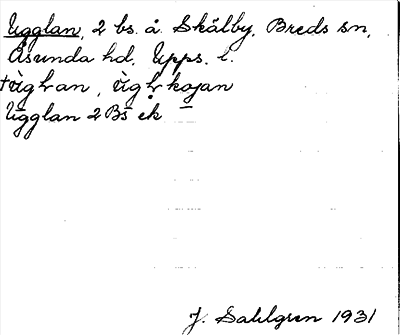 Ugglan, 2 bs. å Skälby, Breds sn,
Åsunda hd, Upps. l.
Ugglan 2 Bs ek
J. Sahlgren 1931